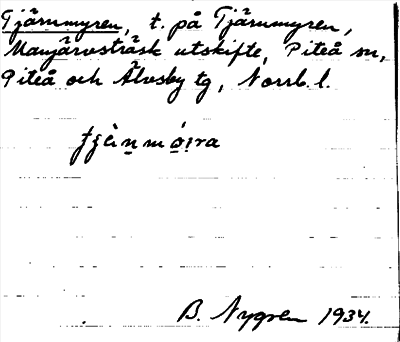 Tjärnmyren, t. på Tjärnmyren,
Manjärvsträsk utskifte, Piteå sn,
Piteå och Älvsby tg, Norrb. l.
B. Nygren 1934.